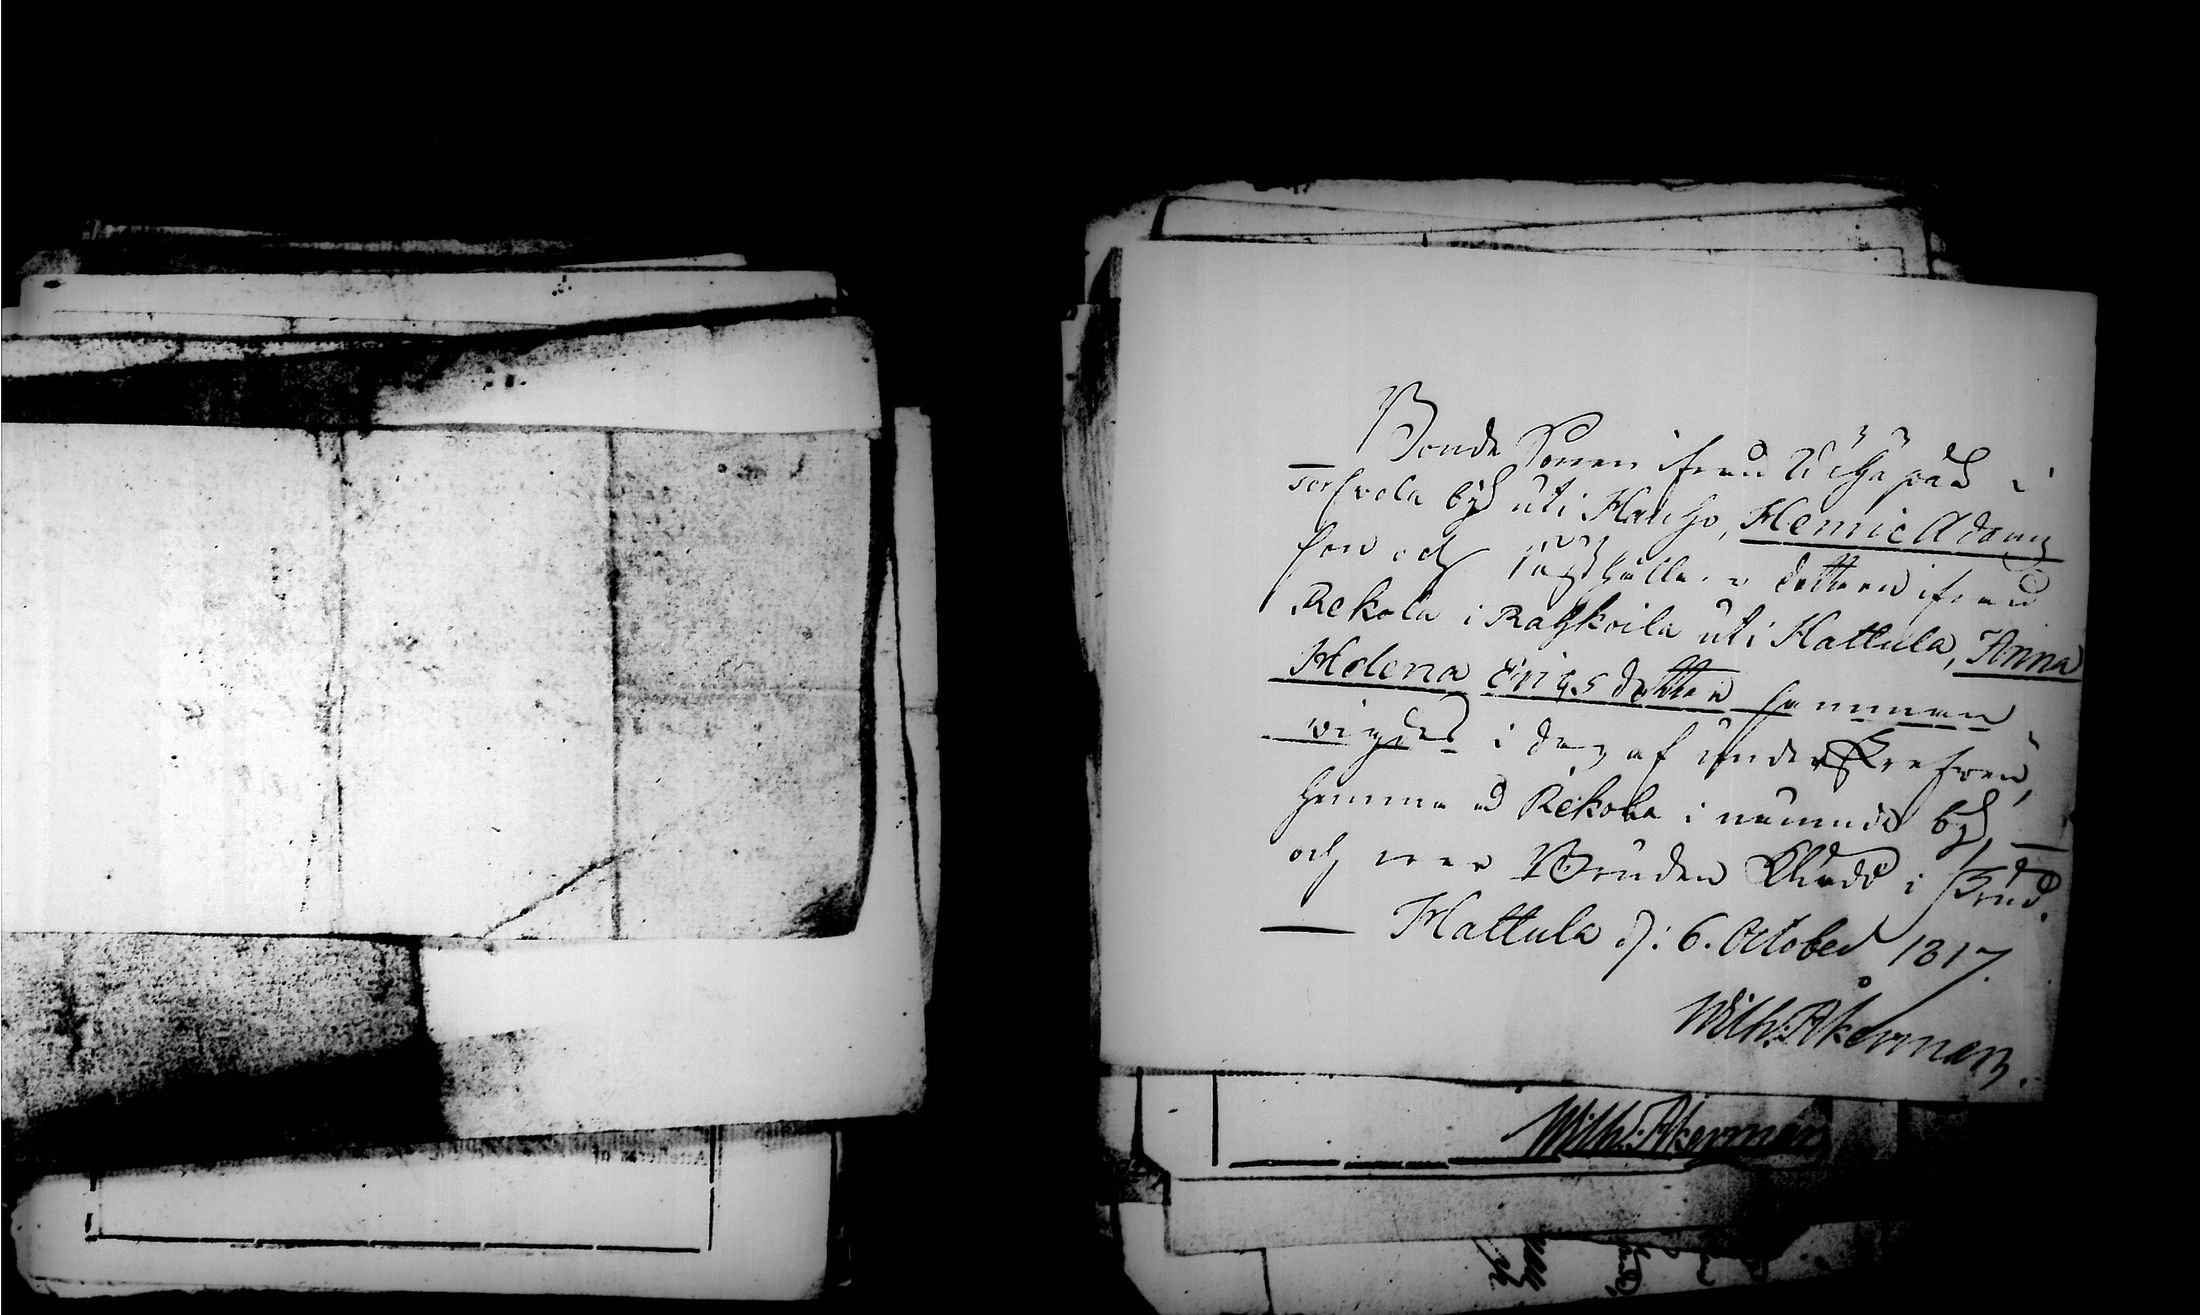 Bonde Sonen ifrån Uhapää i
Torfvola by uti Hauho, Henric Adams
son och Rusthållare dottren ifrån
Rekola i Ratzkoila uti Hattula, Anna
Helena Ericsdotter samman
wigdes i dag af underskrefven,
hemma vid Rekola i nämnde by,
och war Bruden klädd i Brud.
Hattula d: 6. October 1817.
Wilh: Åkerman.
Wilh: Åkerman